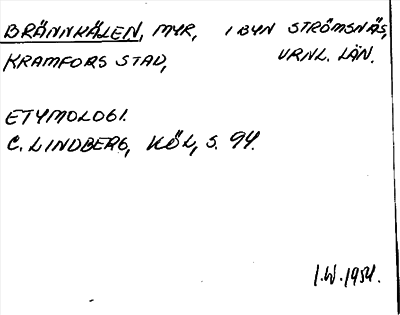 BRÄNNKÄLEN, MYR, I BYN STRÖMSNÄS,
KRAMFORS STAD, VRNL. LÄN.
ETYMOLOGI.
C. LINDBERG, KÖL, S. 94.
I.W. 1954.